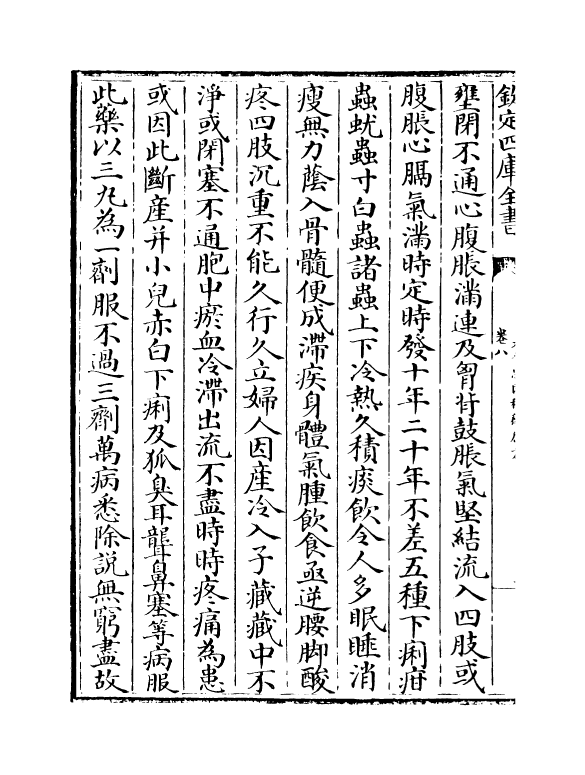 欽定四庫全書
卷八
壅閉不通心腹脹滿連及胷背鼓脹氣堅結流入四肢或
腹脹心膈氣滿時定時發十年二十年不差五種下痢疳
蟲蚘蟲寸白蟲諸蟲上下冷熱久積痰飲令人多眠睡消
瘦無力蔭入骨髓便成滯疾身體氣腫飲食亟逆腰脚酸
疼四肢沉重不能久行久立婦人因産冷入子藏藏中不
淨或閉塞不通胞中瘀血冷滯出流不盡時時疼痛為患
或因此斷産并小兒赤白下痢及狐臭耳聾鼻塞等病服
此藥以三丸為一劑服不過三劑萬病悉除説無窮盡故